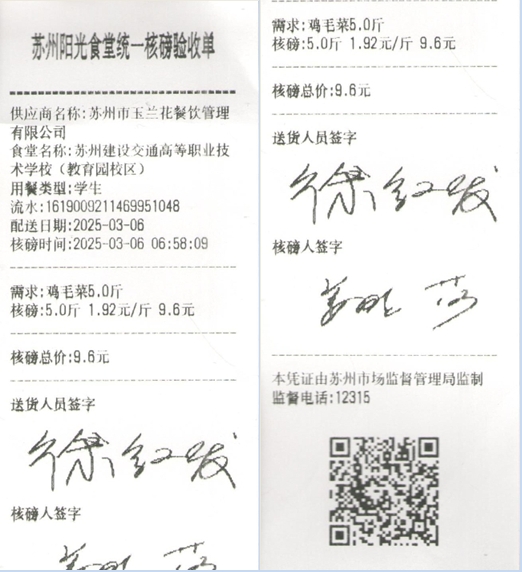 苏州阳光食堂统一核磅验收单
供应商名称:苏州市玉兰花餐饮管理
有限公司
食堂名称:苏州建设交通高等职业技
术学校（教育园校区）
用餐类型:学生
流水:1619009211469951048
配送日期:2025-03-06
核磅时间:2025-03-06 06:58:09
需求:鸡毛菜5.0斤
核磅:5.0斤 1.92元/斤 9.6元
核磅总价:9.6元
送货人员签字
徐红发
核磅人签字
需求:鸡毛菜5.0斤
核磅:5.0斤 1.92元/斤 9.6元
核磅总价:9.6元
送货人员签字
徐红发
核磅人签字
本凭证由苏州市场监督管理局监制
监督电话:12315